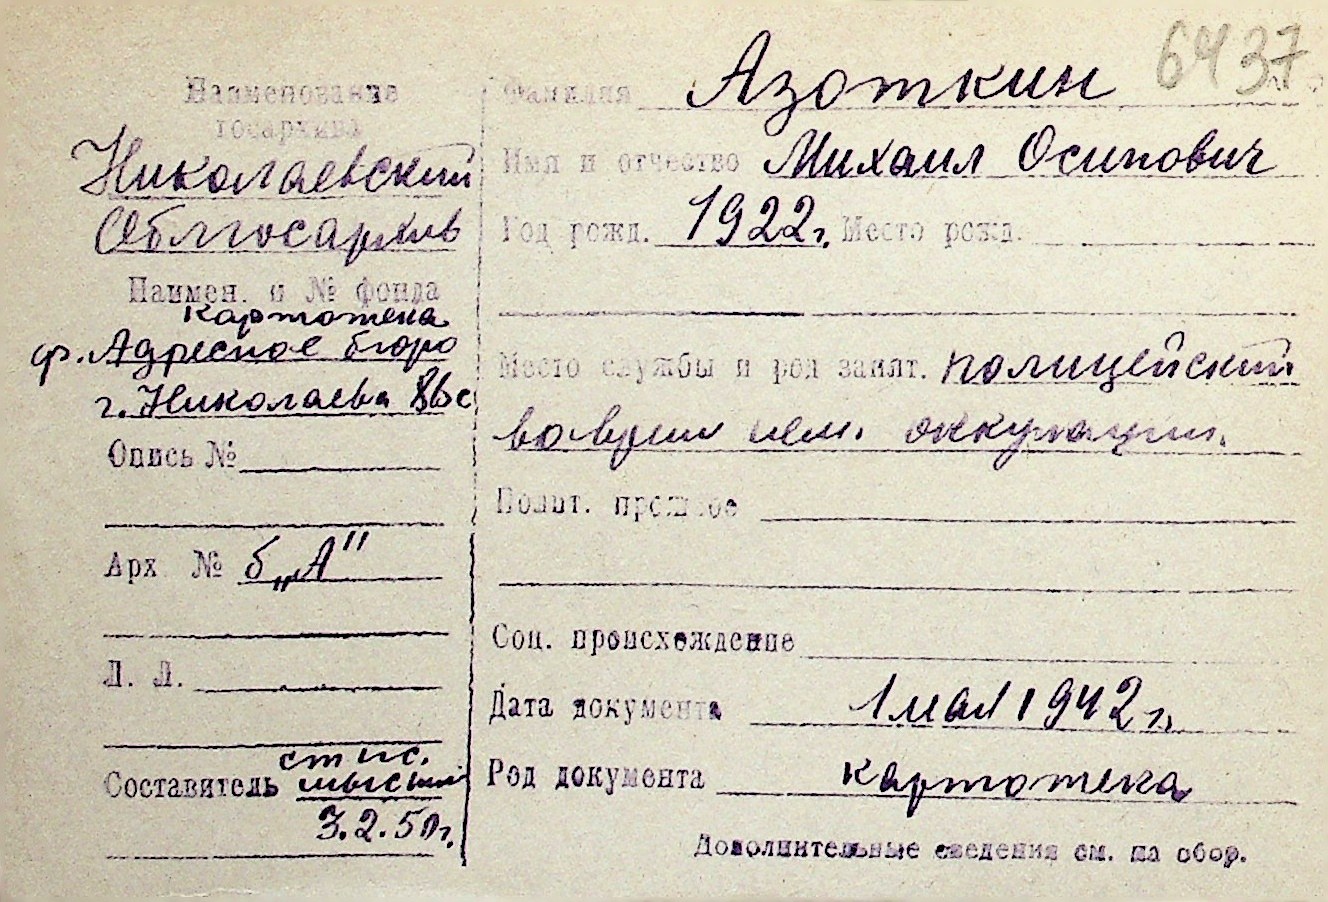 6437
Наименование
госархива
Николаевский
Облгосархив
Наимен. и № фонда
картотека
ф. Адресное бюро
г. Николаева
Опись №
Арх № б „А"
Л. Л.
Составитель ст ис.
3.2.50г.
Фамилия Азоткин
Имя и отчество Михаил Осипович
Год рожд. 1922г. Место рожд.
Место службы и род занят. полицейский
во время нем. оккупации.
Полит. прошлое
Соц. происхождение
Дата документа 1 мая 1942 г.
Род документа картотека
Дополнительные сведения см. на обор.